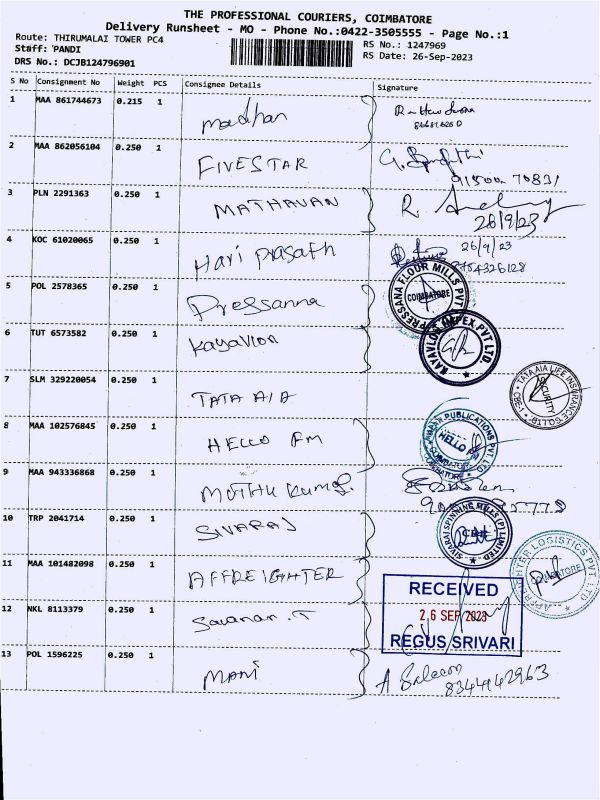 THE PROFESSIONAL COURIERS, COIMBATORE
Delivery Runsheet - MO - Phone No.:0422-3505555 - Page No.:1
Route: THIRUMALAI TOWER PC4
RS No.: 1247969
Staff: PANDI
RS Date: 26-Sep-2023
DRS No.: DCJB124796901
S No Consignment No Weight PCS Consignee Details Signature
1 MAA 861744673 0.215 1 Madhan
2 MAA 862056104 0.250 1 FIVESTAR
91500 70831
3 PLN 2291363 0.250 1 MATHAVAN R.
26/9/23
4 KOC 61020065 0.250 1 Hari Prasath 26/9/23
9754326128
PRESSANA FLOUR MILLS PVT
COIMBATORE
5 POL 2578365 0.250 1 Pressanna
6 TUT 6573582 0.250 1 Kayavlon
KAYAVLON IMPEX PVT LTD
7 SLM 329220054 0.250 1 TATA AIA
TATA AIA LIFE INSURANCE CO. LTD.
SECURITY
8 MAA 102576845 0.250 1 HELLO FM
PUBLICATIONS PVT LTD
HELLO
COIMBATORE
9 MAA 943336868 0.250 1 Muthu Kumar
10 TRP 2041714 0.250 1 SIVARAJ
SIVARAJ SPINNING MILLS (P) LIMITED
CBE
11 MAA 101482098 0.250 1 AFFREIGHTER
AFFREIGHTER LOGISTICS PVT. LTD
COIMBATORE
RECEIVED
26 SEP 2023
REGUS SRIVARI
12 NKL 8113379 0.250 1 Saranan.T
13 POL 1596225 0.250 1 MANI A
8344142963